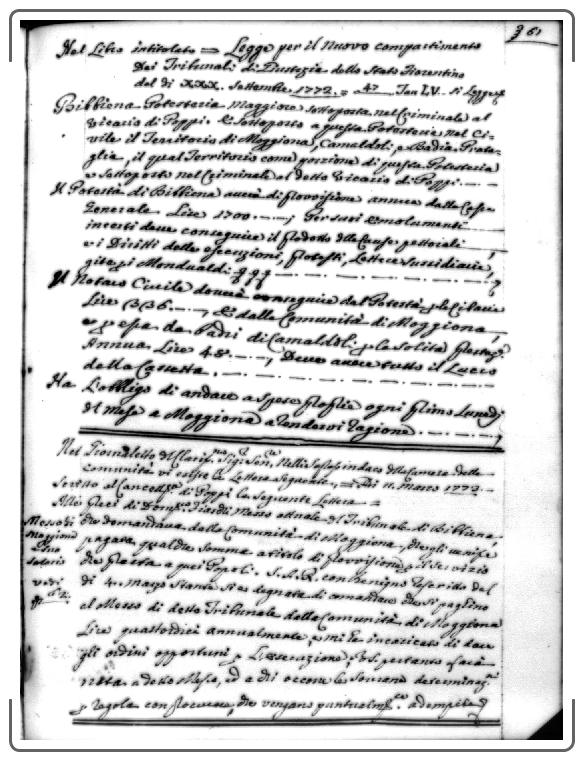 361
Nel Libro intitolato = Legge per il Nuovo compartimento
Dei Tribunali di Giustizia dello Stato Fiorentino
del dì XXX. Settembre 1772. = 47 Tan LV. si Legge
Bibbiena Potesteria Maggiore sottoposta nel Criminale al
Vicario di Poppi. E sottoposto a questa Potesteria nel Ci-
vile il Territorio di Moggiona, Camaldoli, e Badia Prata-
glia, il qual Territorio come porzione di questa Potesteria
è sottoposto nel Criminale al detto Vicario di Poppi
Il Potestà di Bibbiena averà di provvisione annua dalla Cassa
Generale Lire 1700. ; Per varj emolumenti
incerti deve conseguire il prodotto delle Cause pettoriali
e i Diritti delle esecuzioni, protesti, Lettere sussidiarie,
gite, e i Mondualdi
Il Notaro Civile doverà conseguire dal Potestà
Lire 336. , E dalla Comunità di Moggiona,
e per essa da Padri di Camaldoli per la solita
Annua Lire 48. , Deve avere tutto il Lucro
della Cassetta.
Ha L'obbligo di andare a spese proprie ogni primo Lunedì
del Mese a Moggiona a rendervi ragione.
Nel Giornaletto
comunità vi esiste la Lettera seguente = Dì 11. Marzo 1772
scritto al Cancell. di Poppi la seguente Lettera =
Alle preci di Dom. Messo attuale del Tribunale di Bibbiena,
che domandava dalla Comunità di Moggiona, che gli venisse
pagava qualche somma a titolo di provvisione per il servizio
che presta a quei Popoli. S.A.R. con benigno rescritto del
dì 4. Marzo stante si è degnata di comandare che si paghino
al Messo di detto Tribunale dalla Comunità di Moggiona
Lire quattordici annualmente, e mi ha incaricato di dare
gli ordini opportuni per L'esecuzione; VS. pertanto farà
nota a detto Messo, ed a chi occorre la Sovrana determinaz.
e regola con procurare, che vengano puntualm. adempite
Messo di
Moggiona
suo
salario
vedi